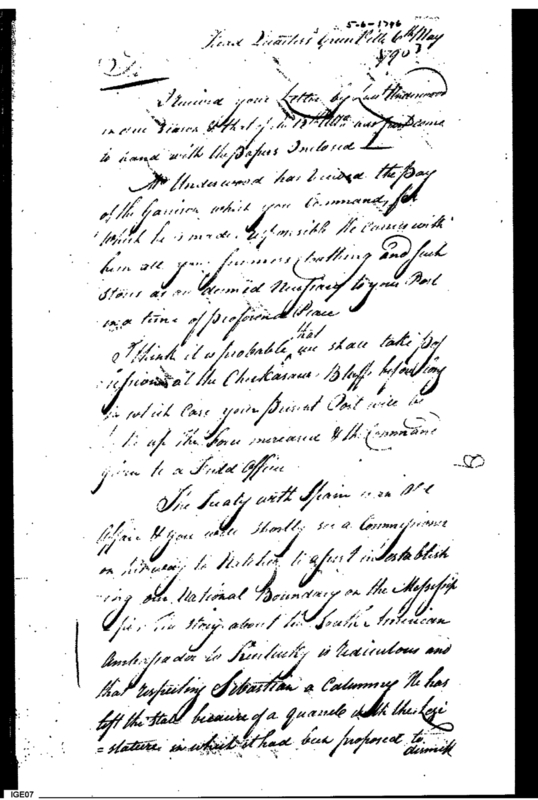 5-6-1796
Head Quarters Green Ville 6th May
1796
Sir
I received your Letter by Lieut Underwood
in due season & that of the 13th Ulto has just come
to hand with the Papers Inclosed
Mr Underwood has received the pay
of the Garrison which you Command, for
which he is made responsible He carries with
him all your summers cloathing and such
stores as are deemed necessary to your Post
in a time of profound Peace
I think it is probable that we shall take pos
session at the Chickasaws Bluffs before long
in which Case your present Post will be
up the Force increased & the Command
given to a Field Officer
The Treaty with Spain is an Old
Affair & you will shortly see a Commissioner
on his way to Natchez to assist in establish
ing our National Boundary on the Messisipi
Sir the story about the South American
Ambassador to Kentucky is Ridiculous and
that respecting Sebastian a Calumny He has
left the State because of a quarrel with the Legi
=slature in which it had been proposed to
dismiss
IGE07